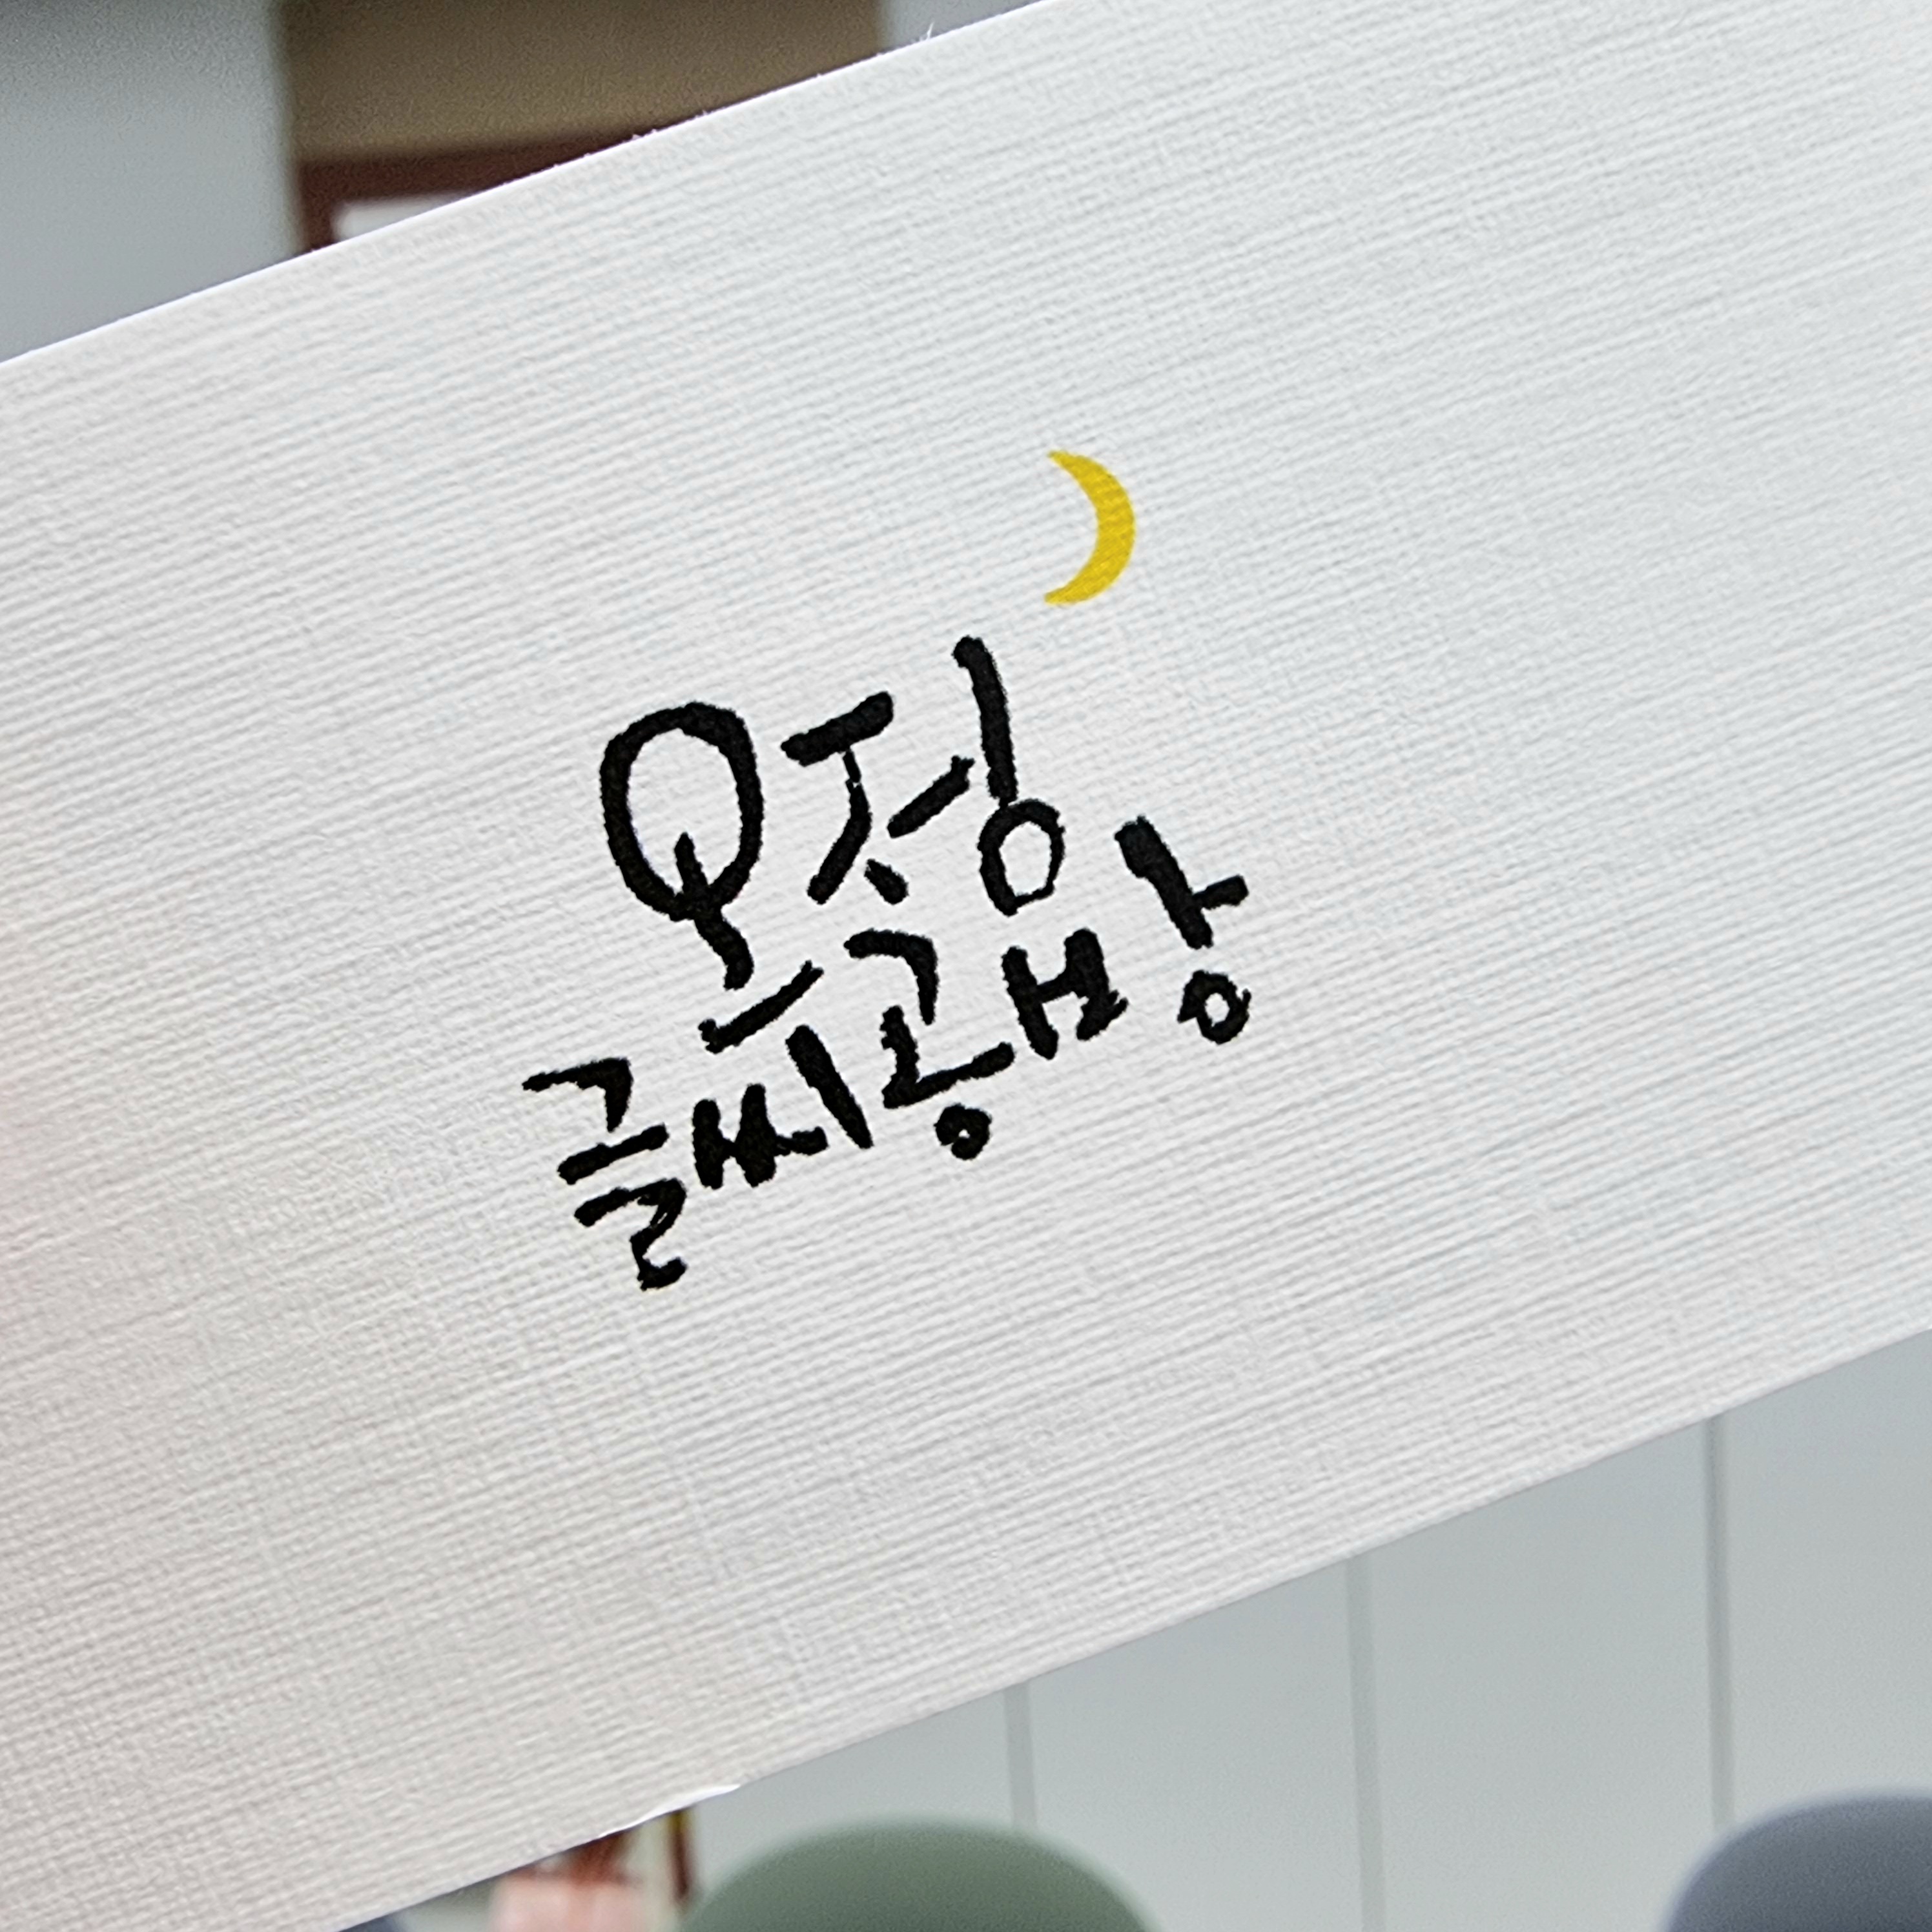 오정
글씨공방